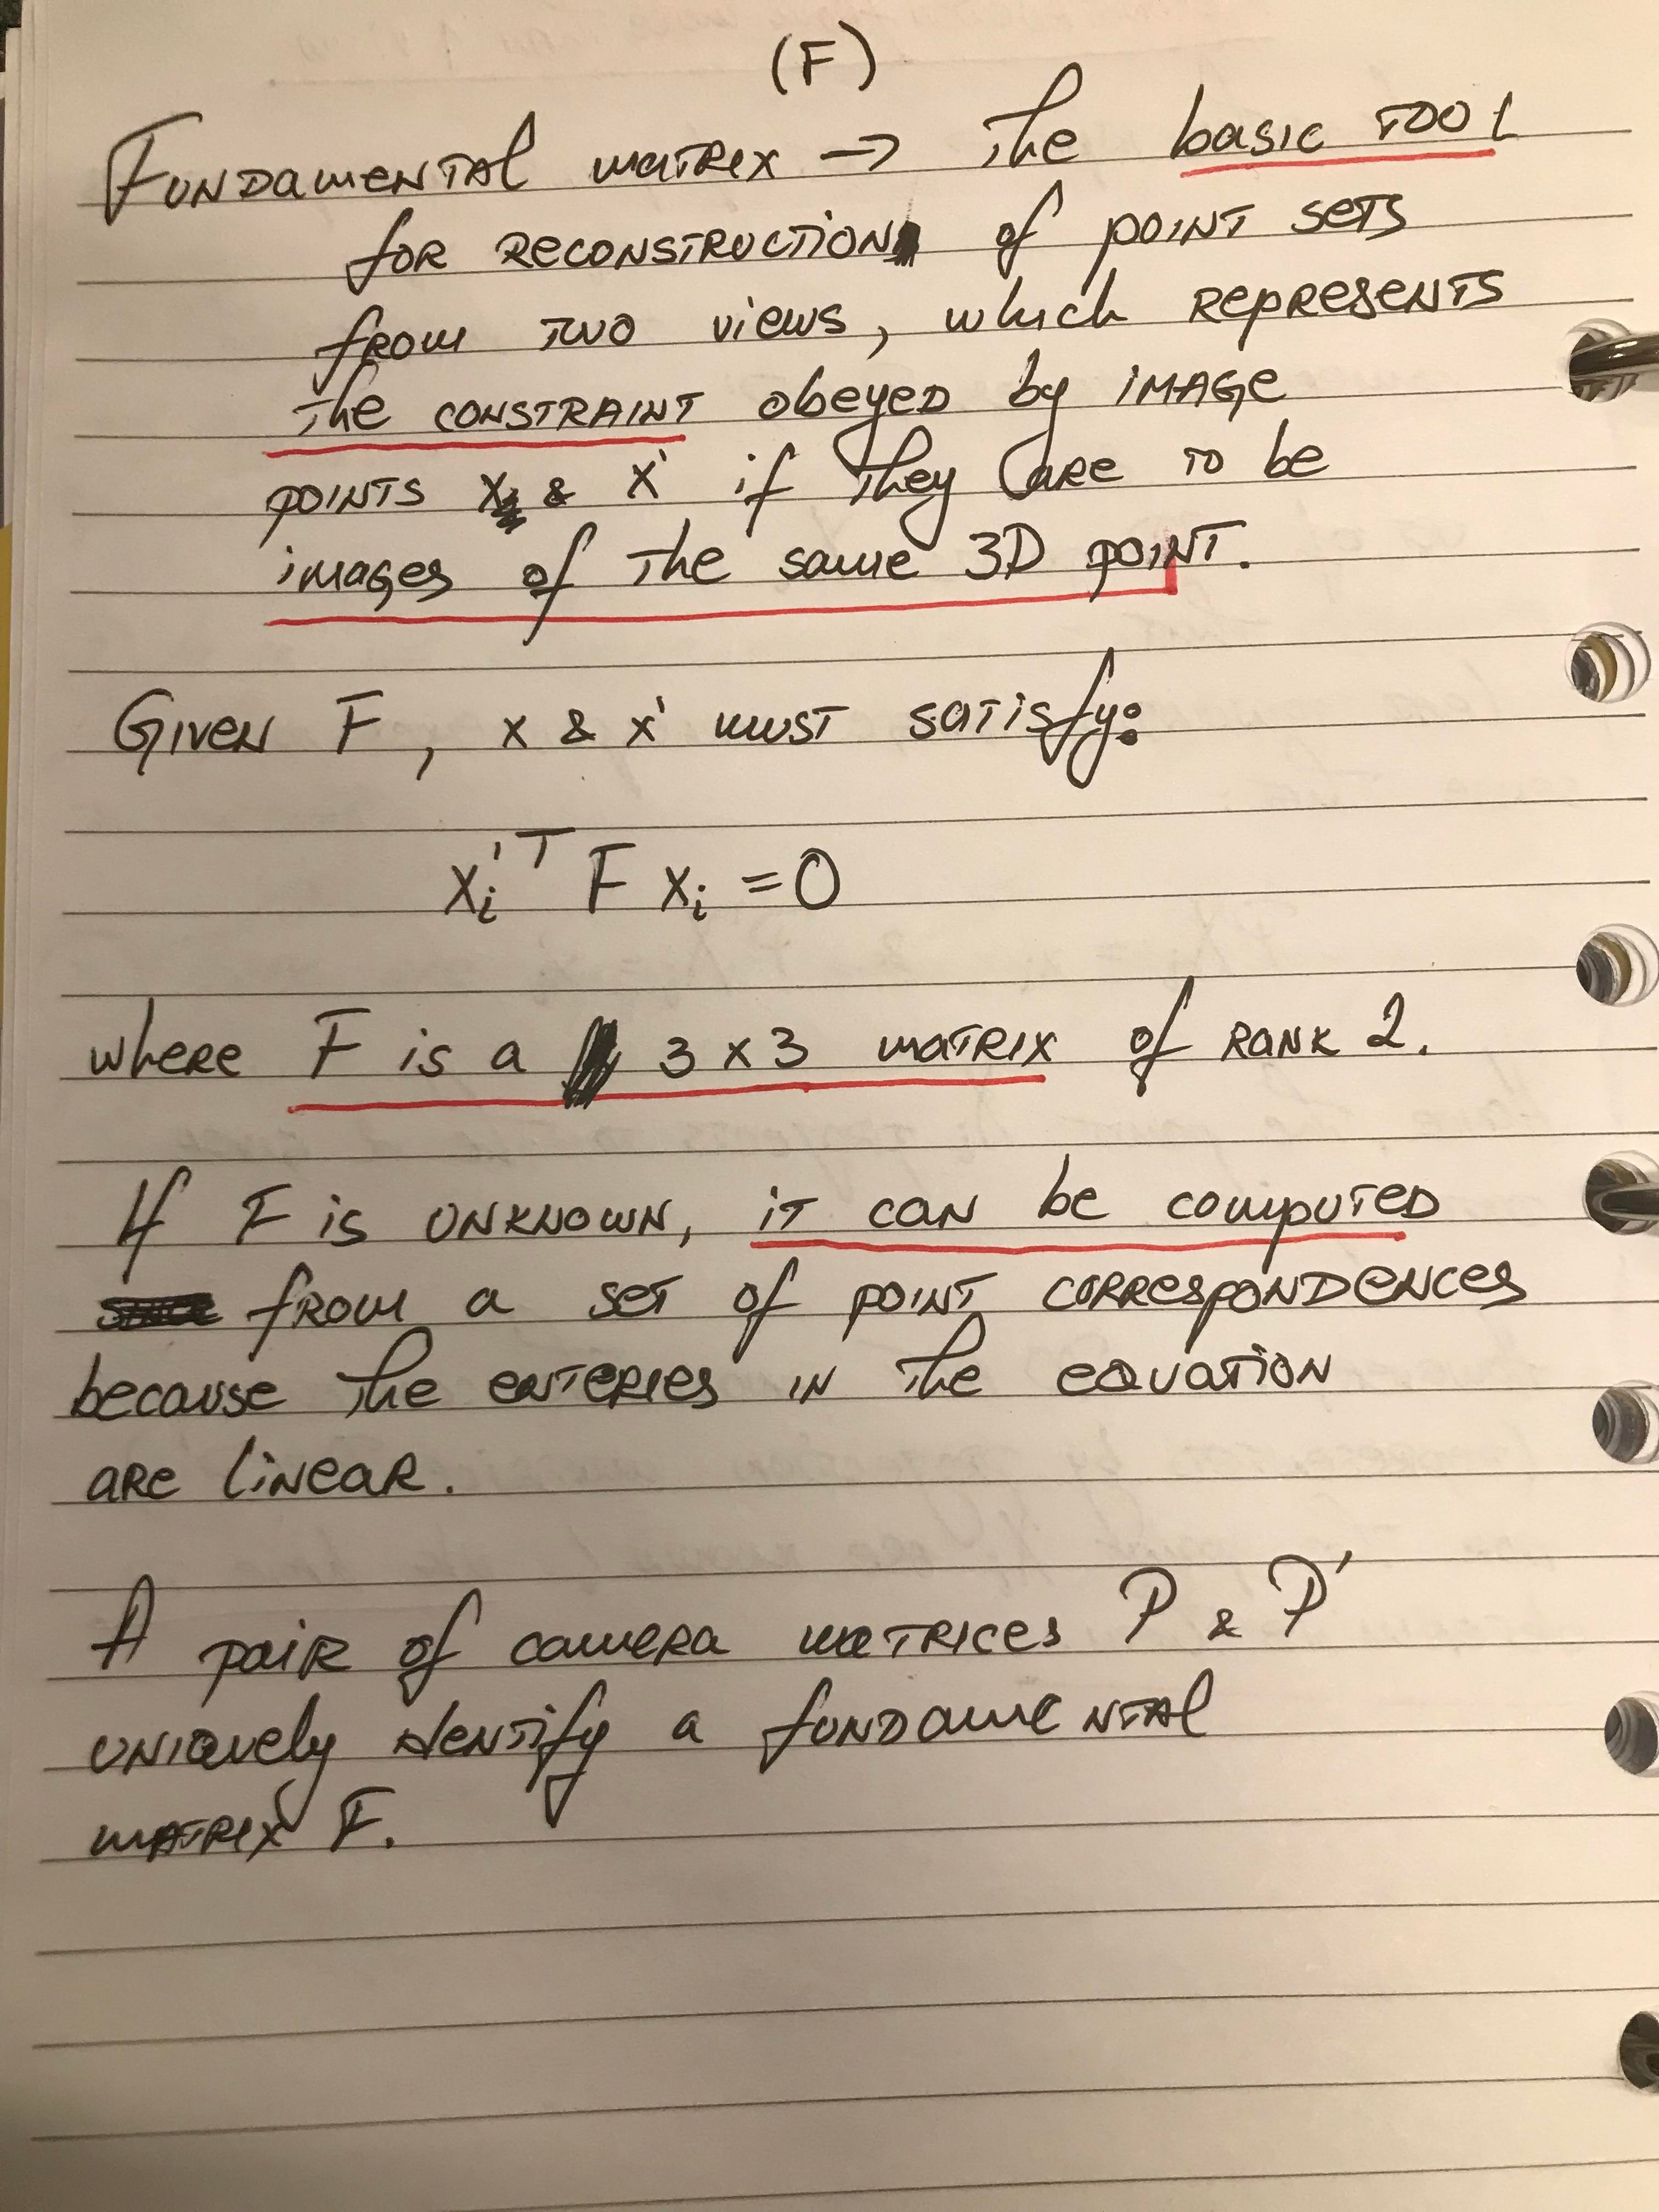 (F)
Fundamental matrix → the basic tool
for reconstruction of point sets
from two views, which represents
the constraint obeyed by image
points x & x' if they are to be
images of the same 3D point.
Given F, x & x' must satisfy:
xᵢ'ᵀ F xᵢ = 0
where F is a 3 x 3 matrix of rank 2.
If F is unknown, it can be computed
from a set of point correspondences
because the enteries in the equation
are linear.
A pair of camera matrices P & P'
uniquely identify a fundamental
matrix F.